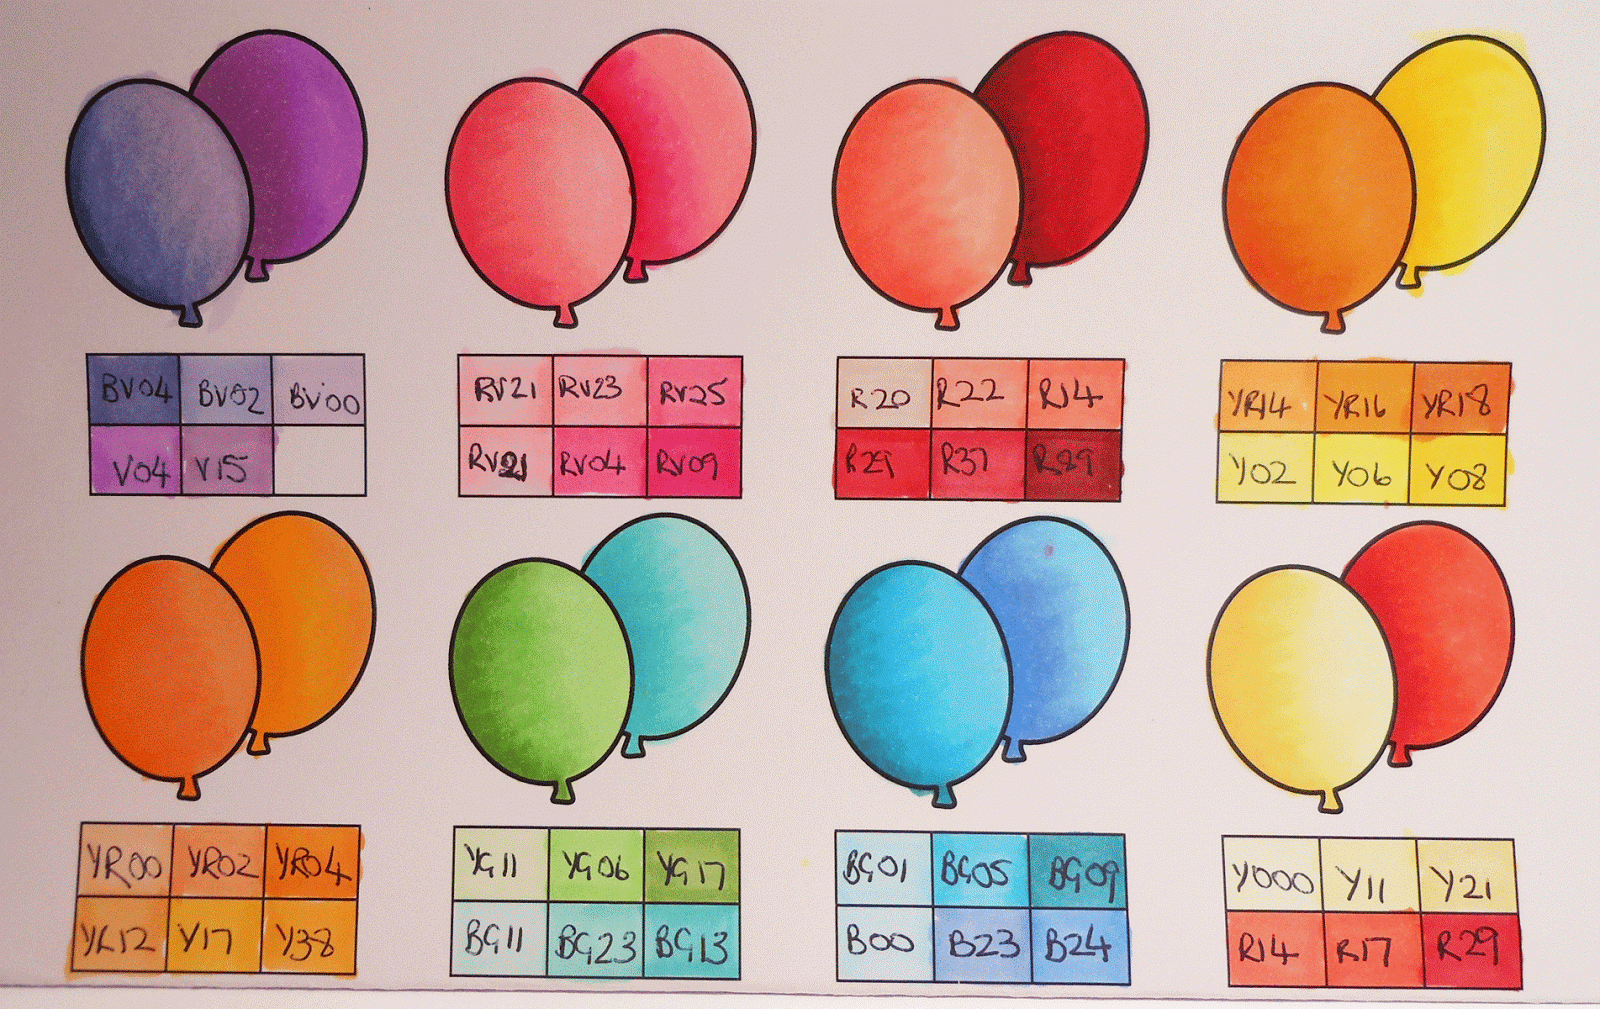 BV04 BV02 BV00
V04 V15
RV21 RV23 RV25
RV21 RV04 RV09
R20 R22 R14
R29 R37 R89
YR14 YR16 YR18
Y02 Y06 Y08
YR00 YR02 YR04
YR12 Y17 Y38
YG11 YG06 YG17
BG11 BG23 BG13
BG01 BG05 BG09
B00 B23 B24
Y000 Y11 Y21
R14 R17 R29